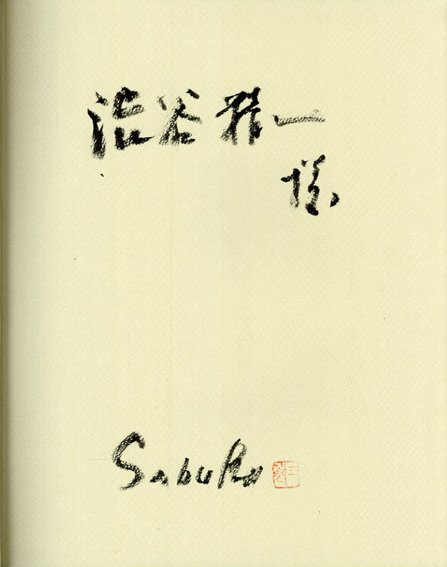 渋谷雅一
様
Saburo